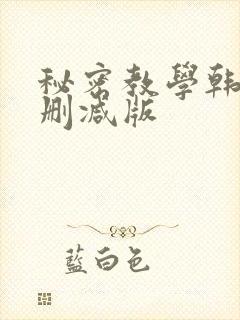 秘密教學韩
删减版
藍白色